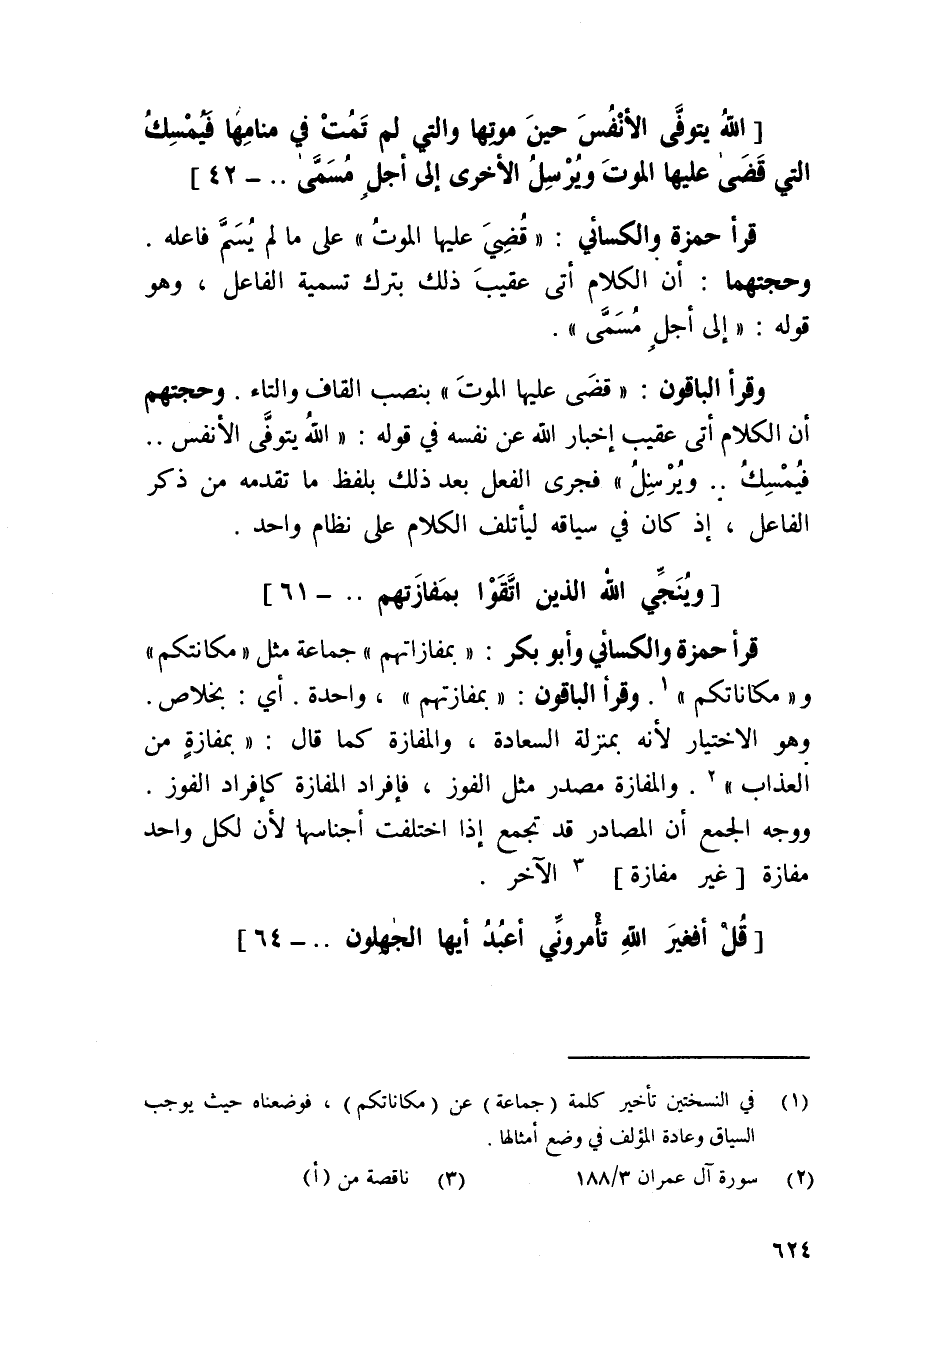 [ اللهُ يتوفَّى الأنْفُسَ حينَ موتِها والتي لم تَمُتْ في منامِها فَيُمْسِكُ
التي قَضَىٰ عليها الموتَ ويُرْسِلُ الأخرى إلى أجلٍ مُسَمًّى .. – ٤٢ ]
قرأ حمزة والكسائي : « قُضِيَ عليها الموتُ » على ما لم يُسَمَّ فاعله .
وحجتهما : أن الكلام أتى عقيبَ ذلك بترك تسمية الفاعل ، وهو
قوله : « إلى أجلٍ مُسَمًّى » .
وقرأ الباقون : « قضَى عليها الموتَ » بنصب القاف والتاء . وحجتهم
أن الكلام أتى عقيب إخبار الله عن نفسه في قوله : « اللهُ يتوفَّى الأنفس ..
فيُمْسِكُ .. ويُرْسِلُ » فجرى الفعل بعد ذلك بلفظ ما تقدمه من ذكر
الفاعل ، إذ كان في سياقه ليأتلف الكلام على نظام واحد .
[ ويُنَجِّي الله الذين اتَّقَوْا بمَفازَتهم .. – ٦١ ]
قرأ حمزة والكسائي وأبو بكر : « بمفازاتهم » جماعة مثل « مكانتكم »
و « مكاناتكم » ١ . وقرأ الباقون : « بمفازتهم » ، واحدة . أي : بخلاص .
وهو الاختيار لأنه بمنزلة السعادة ، والمفازة كما قال : « بمفازةٍ من
العذاب » ٢ . والمفازة مصدر مثل الفوز ، فإفراد المفازة كإفراد الفوز .
ووجه الجمع أن المصادر قد تجمع إذا اختلفت أجناسها لأن لكل واحد
مفازة [ غير مفازة ] ٣ الآخر .
[ قُلْ أفغيرَ اللهِ تأْمرونِّي أعبُدُ أيها الجٰهلون .. – ٦٤ ]
(١) في النسختين تأخير كلمة ( جماعة ) عن ( مكاناتكم ) ، فوضعناه حيث يوجب
السياق وعادة المؤلف في وضع أمثالها .
(٢) سورة آل عمران ١٨٨/٣ (٣) ناقصة من (أ)
٦٢٤